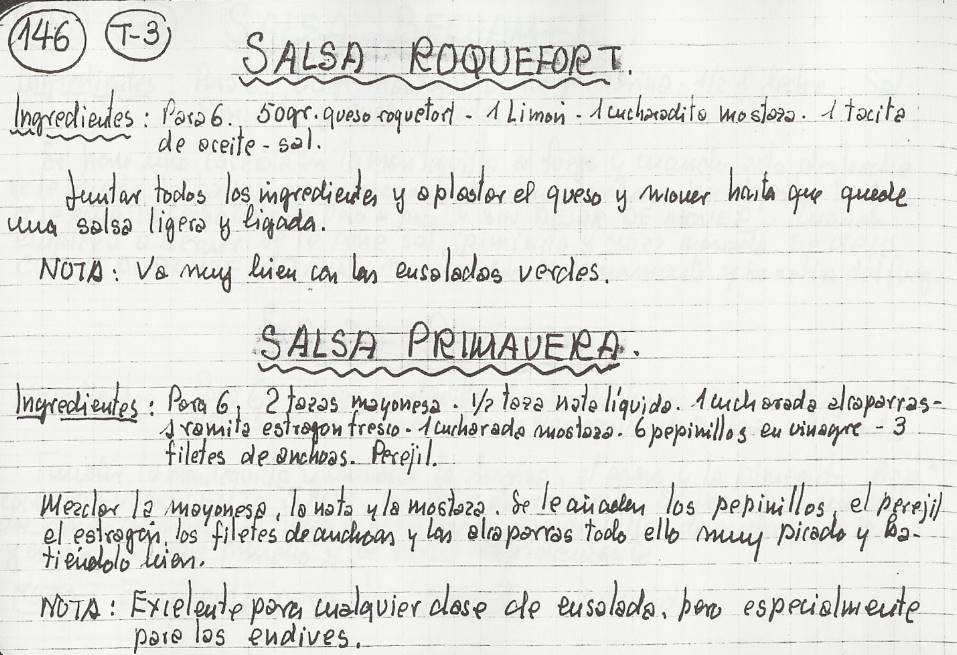 146 T-3
SALSA ROQUEFORT.
Ingredientes: Para 6. 50gr. queso roquefort - 1 Limón - 1 cucharadita mostaza. 1 tacita
de aceite - sal.
Juntar todos los ingredientes y aplastar el queso y mover hasta que quede
una salsa ligera y ligada.
NOTA: Va muy bien con las ensaladas verdes.
SALSA PRIMAVERA.
Ingredientes: Para 6, 2 tazas mayonesa. 1/2 taza nata líquida. 1 cucharada alcaparras-
1 ramita estragon fresco. 1 cucharada mostaza. 6 pepinillos en vinagre - 3
filetes de anchoas. Perejil.
Mezclar la mayonesa, la nata y la mostaza. Se le añaden los pepinillos, el perejil
el estragón, los filetes de anchoas y las alcaparras todo ello muy picado y ba-
tiéndolo bien.
NOTA: Excelente para cualquier clase de ensalada, pero especialmente
para las endives.